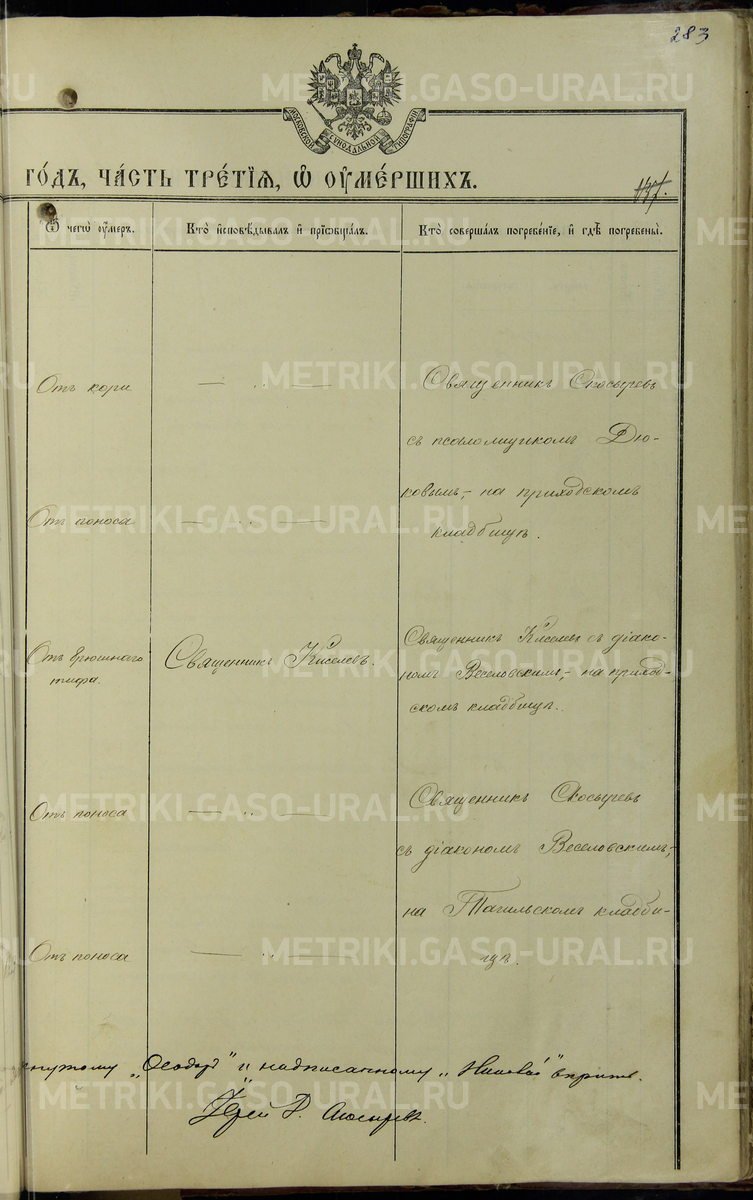 283
МОСКОВСКОЙ СѴНОДАЛЬНОЙ ТИПОГРАФІИ
ГОДЪ, ЧАСТЬ ТРЕТІЯ, Ѡ ОУМЕРШИХЪ.
137.
Ѿ чегѡ оумеръ.
Кто исповѣдывалъ и прїобщалъ.
Кто совершалъ погребенїе, и гдѣ погребены.
Отъ кори
Священникъ Скосыревъ
съ псаломщикомъ Дю-
ковымъ,- на приходскомъ
кладбищѣ.
Отъ поноса
Отъ брюшнаго
тифа.
Священникъ Киселевъ.
Священникъ Киселевъ съ діако-
номъ Веселовскимъ,- на приход-
скомъ кладбищѣ.
Отъ поноса
Священникъ Скосыревъ
съ діакономъ Веселовскимъ,-
на Тагильскомъ кладби-
щѣ.
Отъ поноса
"Ѳеодоръ" и надписанному
Іерей Скосыревъ.
METRIKI.GASO-URAL.RU